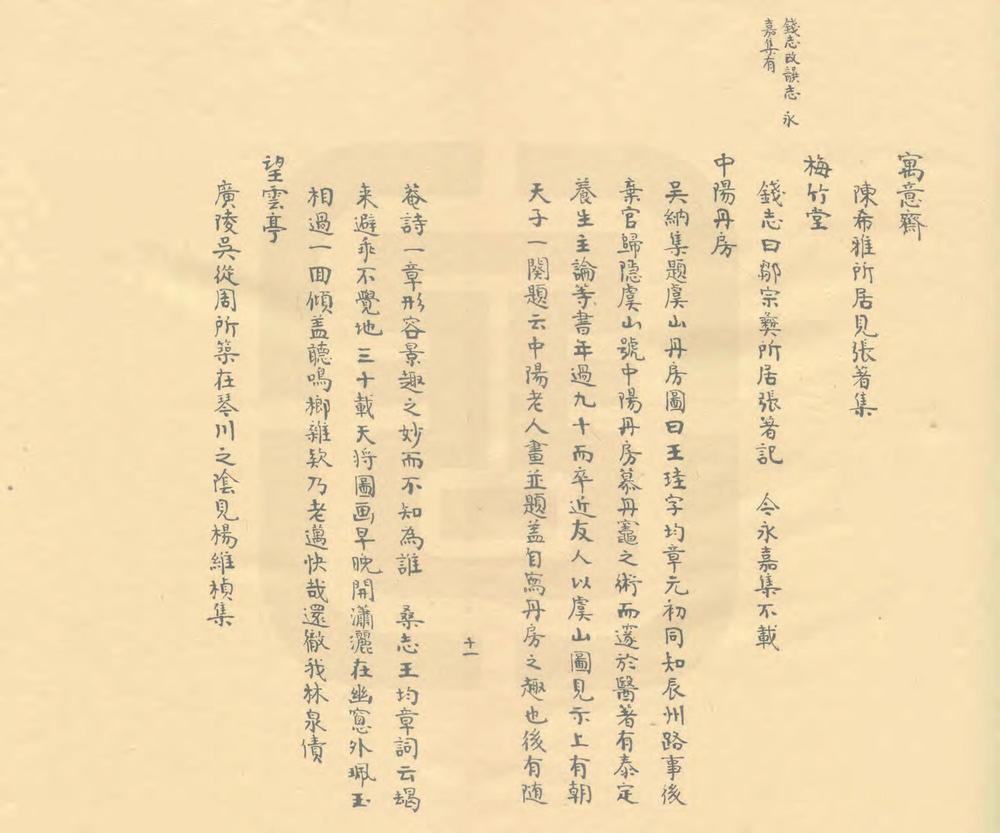 錢志改誤志 永
嘉集有
寓意齋
陳希雅所居見張著集
梅竹堂
錢志曰鄒宗彝所居張著記 今永嘉集不載
中陽丹房
吳納集題虞山丹房圖曰王珪字均章元初同知辰州路事後
棄官歸隱虞山號中陽丹房慕丹竈之術而邃於醫著有泰定
養生主論等書年過九十而卒近友人以虞山圖見示上有朝
天子一闋題云中陽老人畫並題盖自寫丹房之趣也後有随
十一
菴詩一章形容景趣之妙而不知為誰 桑志王均章詞云
来避乖不覺地三十載天将圖画早晚開瀟灑在幽窓外珮玉
相過一回傾盖聽鳴榔雜欸乃老邁快哉還徹我林泉債
望雲亭
廣陵吳從周所築在琴川之陰見楊維楨集